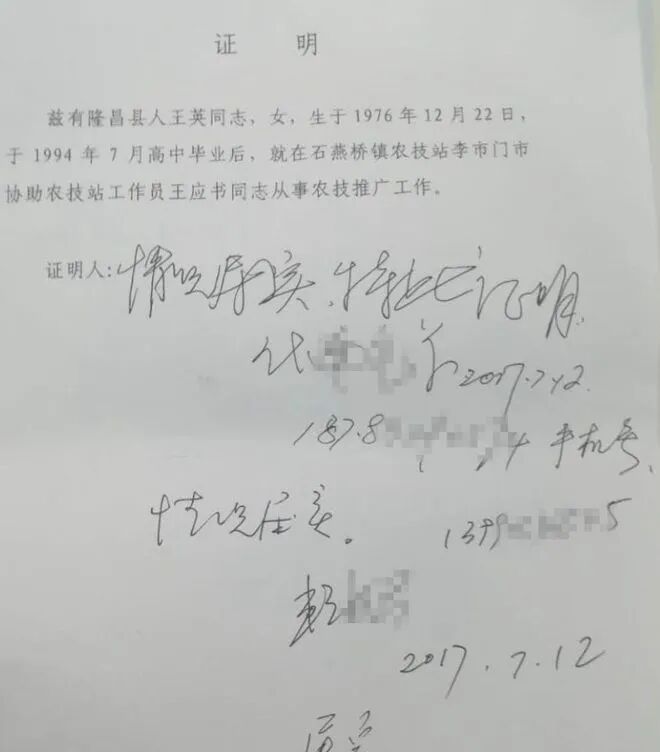 证 明
兹有隆昌县人王英同志，女，生于1976年12月22日，
于1994年7月高中毕业后，就在石燕桥镇农技站李市门市
协助农技站工作员王应书同志从事农技推广工作。
证明人:情况属实、特此证明
2017.7.12.
187.8 4 手机号、
情况属实。
139 5
2017.7.12